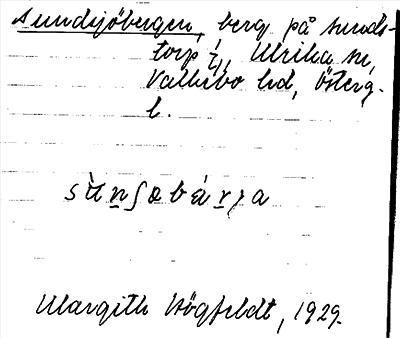 Sundsjöbergen, berg på Sunds-
torp 1/1, Ulrika sn,
Valkebo hd, Österg.
l.
sùnʃɵbárja
Margith Högfeldt, 1929.